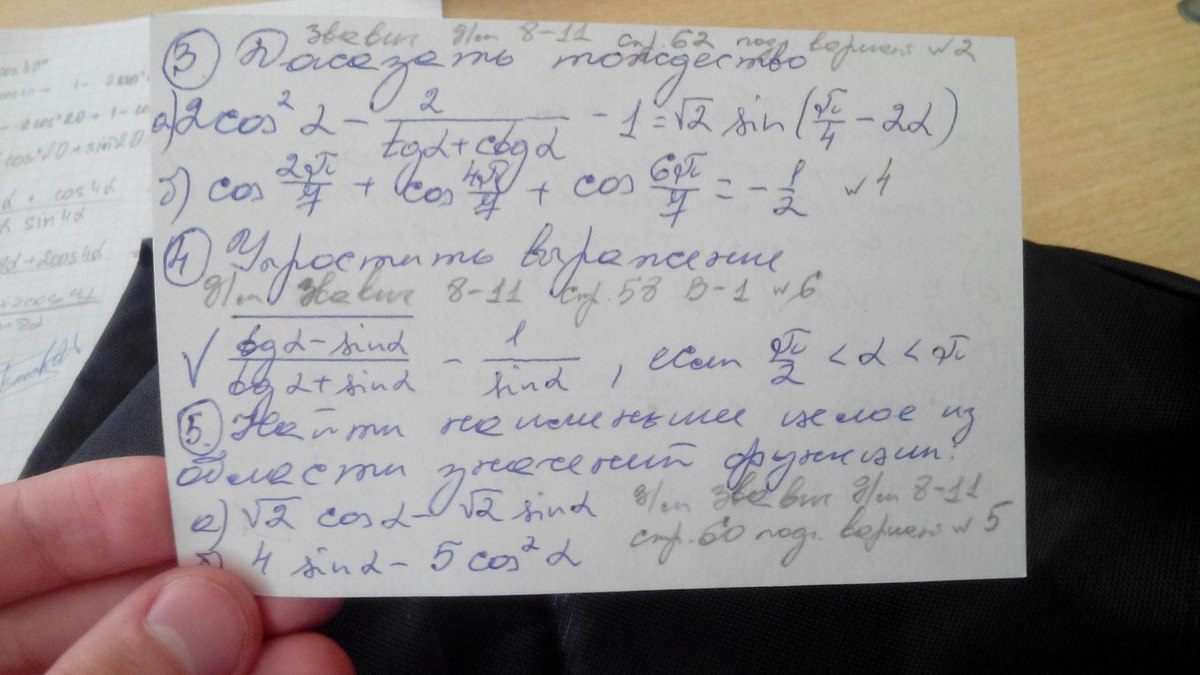 Звавич д/м 8-11 стр. 62 подг. вариант №2
③ Доказать тождество
а) 2cos² α - 2/(tgα + ctgα) - 1 = √2 sin(π/4 - 2α)
б) cos 2π/7 + cos 4π/7 + cos 6π/7 = - 1/2 №1
④ Упростить выражение
д/м Звавич 8-11 стр. 58 В-1 №6
√ (tgα - sinα)/(tgα + sinα) - 1/sinα , если π/2 < α < π
⑤ Найти наименьшее целое из
области значений функции:
а) √2 cosα - √2 sinα
д/м Звавич д/м 8-11
стр. 60 подг. вариант №5
б) 4 sinα - 5 cos² α